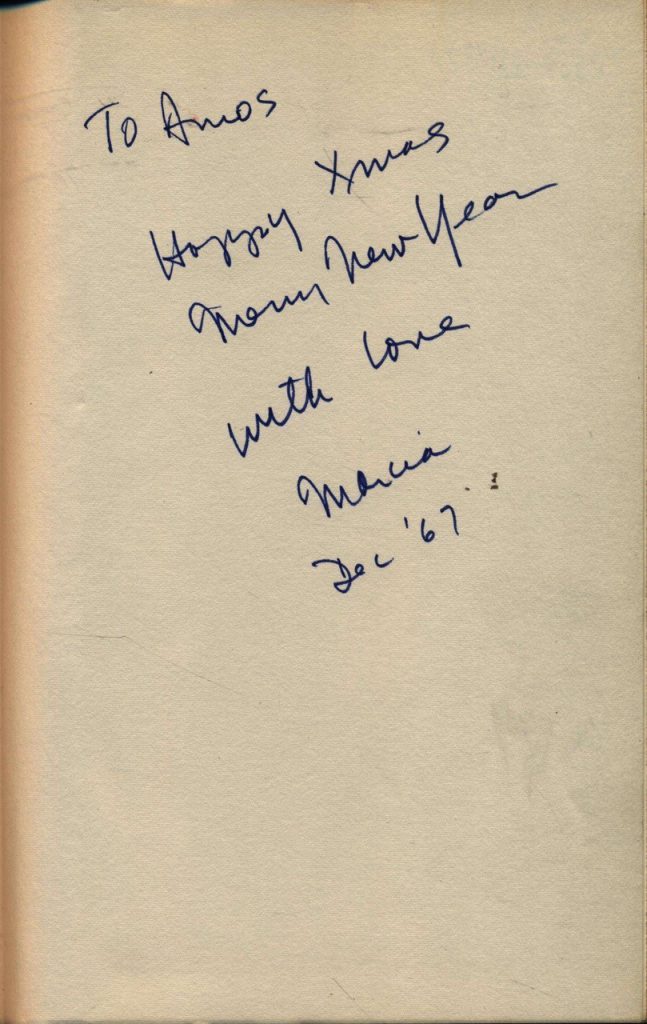 To Amos
Happy Xmas
Merry New Year
with love
Marcia
Dec '67